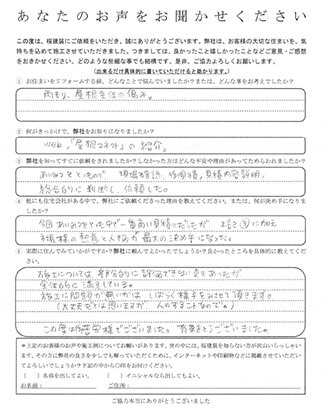 あなたのお声をお聞かせください
この度は、桜建装にご依頼をいただき、誠にありがとうございます。弊社は、お客様の大切な住まいを、気
持ちを込めて施工させていただきました。つきましては、良かったこと嬉しかったことなどご意見・ご感想
をおきかせください。どのような些細な事でも結構です。是非、ご協力よろしくお願いします。
(出来るだけ具体的に書いていただけると助かります。)
①お住まいをリフォームする前、どんなことで悩んでいましたか?または、どんな事をお考えでしたか?
雨もり、屋根全体の傷み。
②何がきっかけで、弊社をお知りになりましたか?
web、「屋根コネクト」の紹介。
③弊社を知ってすぐにご依頼をされましたか?しなかった方はどんな不安や理由があってためらわれましたか?
あいみつをとったので 現場確認、修繕箇所、見積内容説明、
総合的に判断し、依頼した。
④他にも住宅会社がある中で、弊社にご依頼くださった理由を教えてください。または、何が決め手になりましたか?
今回あいみつをとった中で一番高い見積りだったが 上記③に加え
手振様の熱意と人柄が最大の決め手になった。
⑤実際に住んでみていかがですか?弊社に頼んでよかったでしょうか?良かったところを具体的に教えてください。
施工については、部分的に評価できない点もあったが
全体的に満足している。
施工に問題が無いかは しばらく様子をみさせて頂きます。
(大丈夫だとは思いますが、人のすることなので。)
この度はお疲れ様でございました。有難とうございました。
*上記のお客様のお声や施工例についてお願いがあります。世の中には、桜建装を知らない方が沢山いらっしゃい
ます。その方に弊社の良さを少しでも解っていただくために、インターネットや印刷物などに掲載させていただい
てよろしいでしょうか?下記の中から〇印をお付けください。
( )名前を出してよい。 ( )イニシャルなら出してもよい。
お名前: ご住所:
ご協力本当にありがとうございました